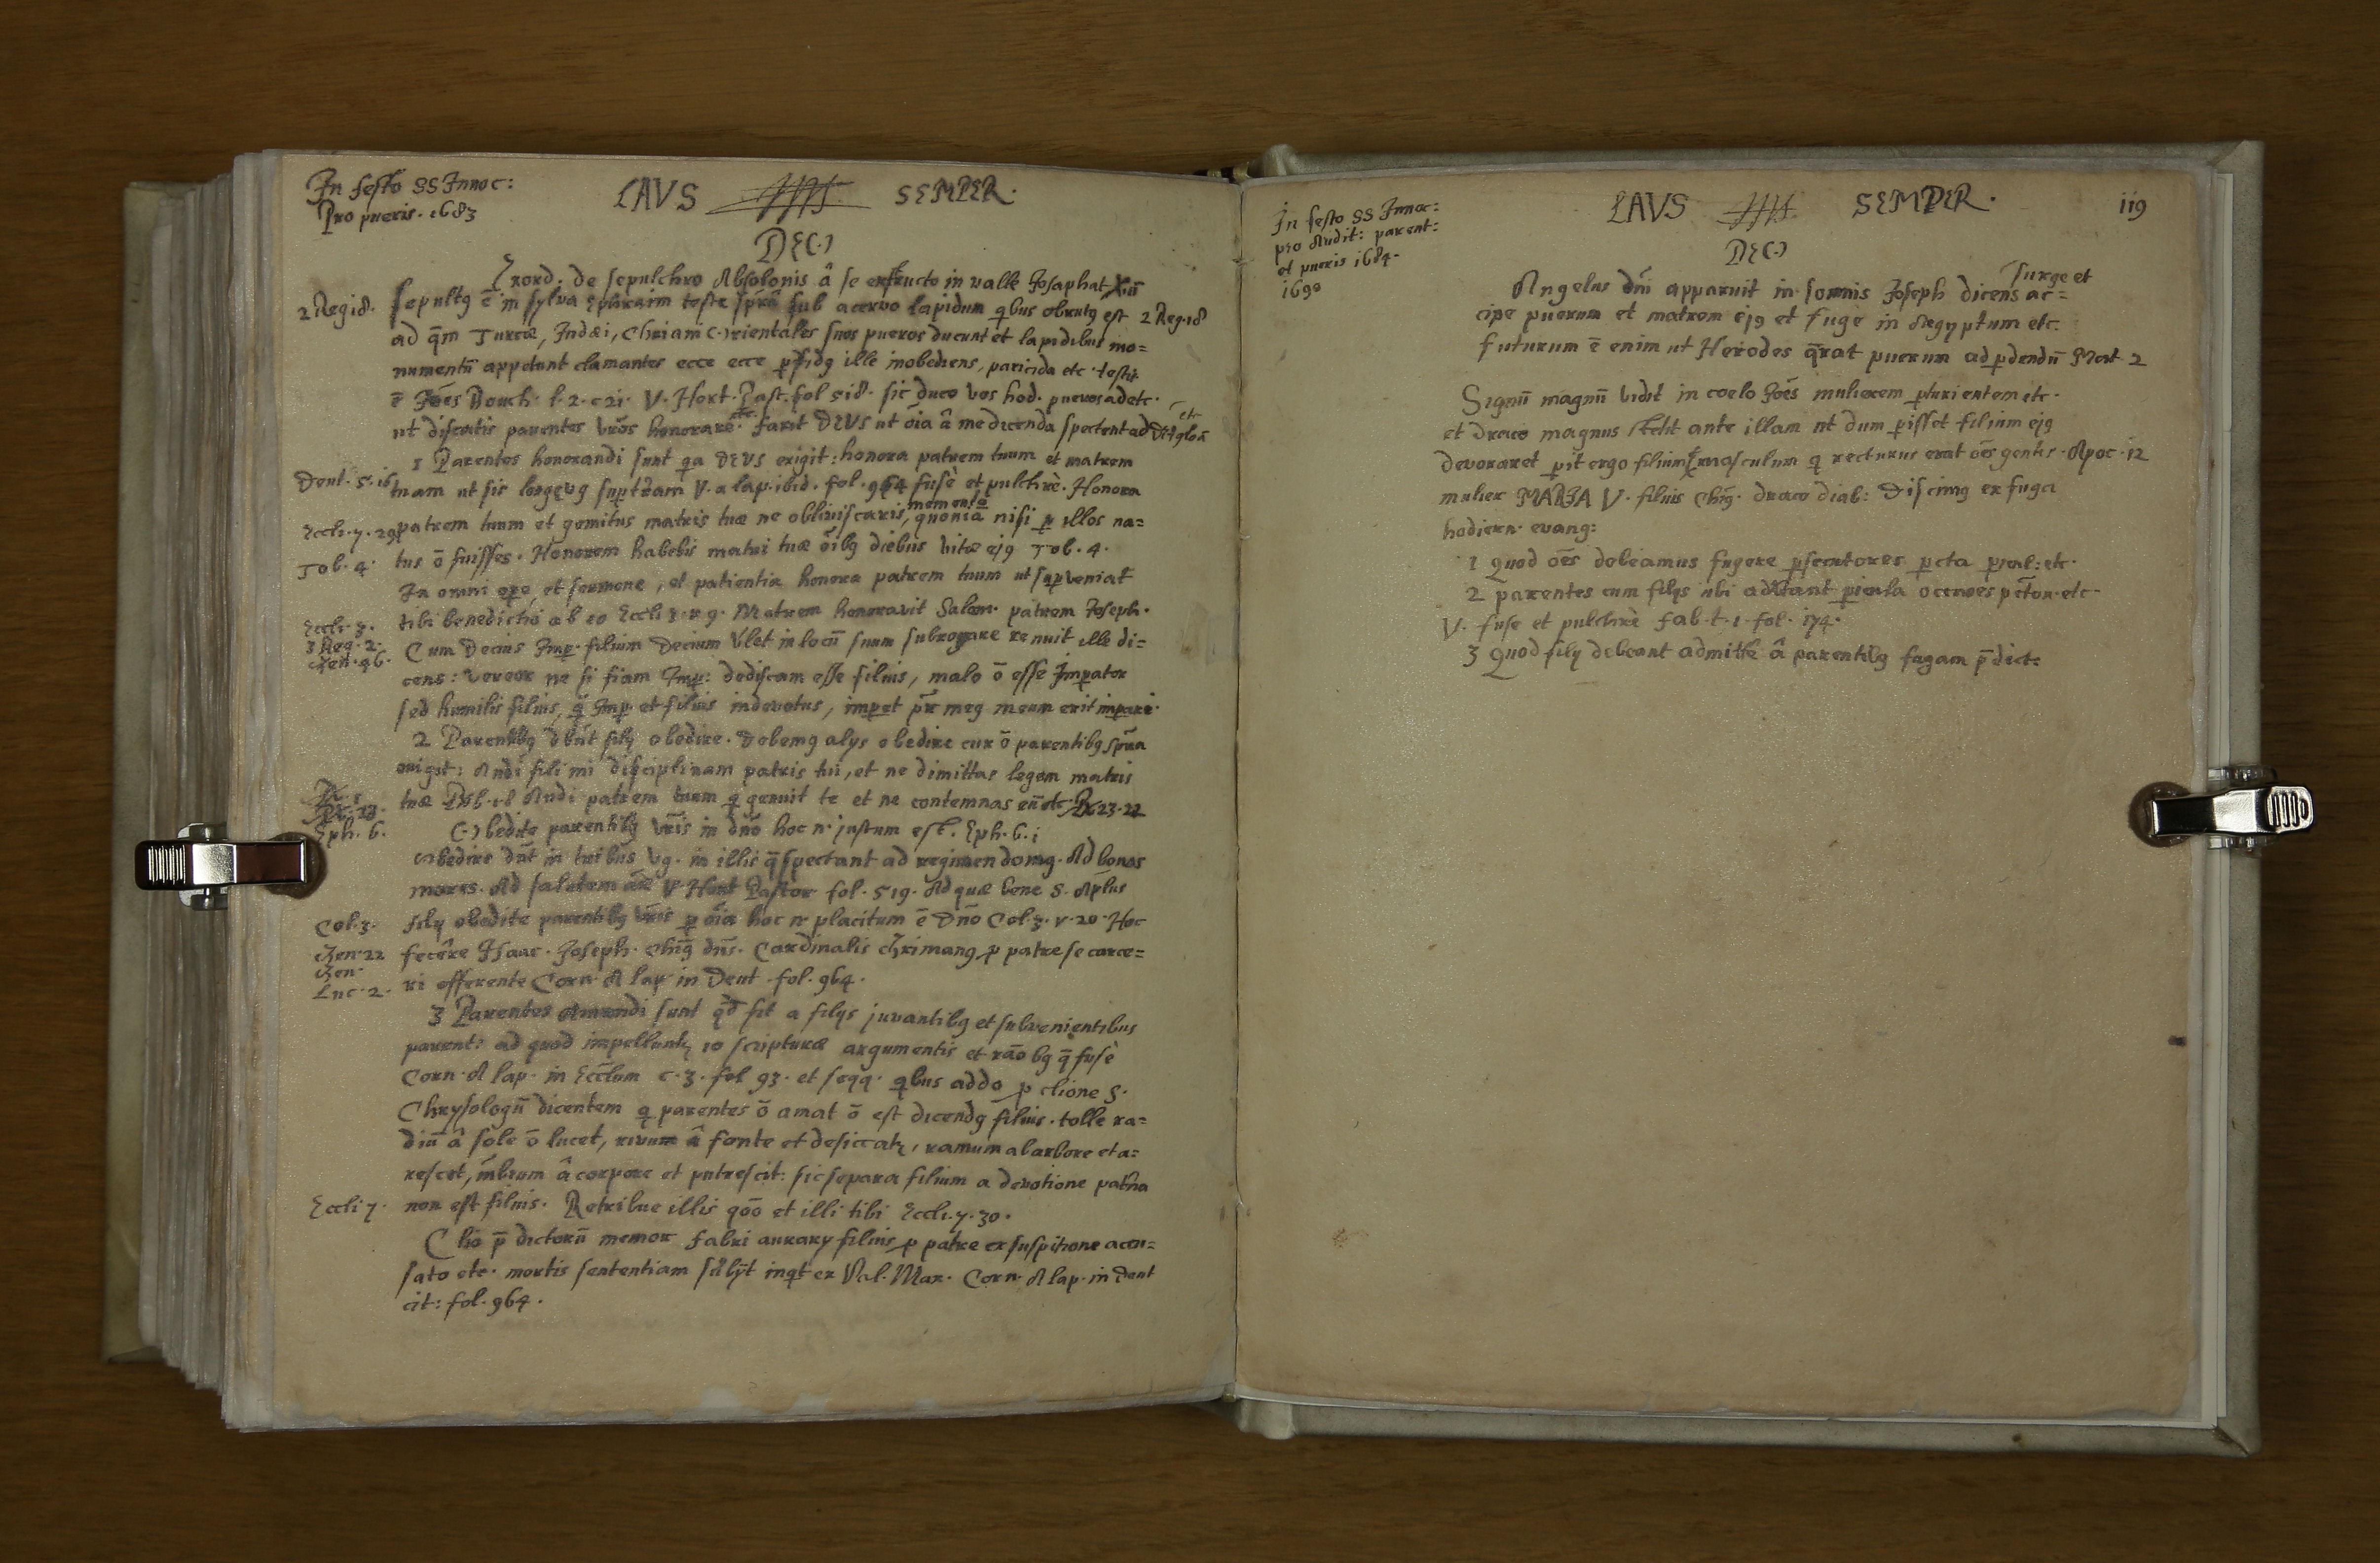 In festo SS Innoc:
Pro pueris. 1683
LAVS SEMPER.
DEO
Exord. de sepulchro Absolonis â se exstructo in valle Josaphat
2 Reg. 18. sepultq ē in sylva Ephraim teste sprâ sub acervo lapidum qbus obrutq est 2 Reg. 18
ad q̄m Turcæ, Judæi, Chriani Orientales suos pueros ducunt et lapidibus mo=
numentū appetunt clamantes ecce ecce pfidq ille inobediens, paricida etc. testis
ē Joēs Bouch. l. 2. c 21. V. Hort. Past. fol 518. sic duco vos hod. pueros ad etc.
ut discatis parentes vrōs honorare. etc. faxit DEVS ut oīa â me dicenda spectent ad etc
1 Parentes honorandi sunt qa DEVS exigit: honora patrem tuum et matrem
Deut. 5. 16 tuam ut sis V. a lap. ibid. fol. 964 fusè et pulchrè. Honora
Eccli. 7. 29 patrem tuum et gemitus matris tuæ ne obliviscaris, memento quoniā nisi p illos na=
Tob. 4. tus ō fuisses. Honorem habebis matri tuæ oībq diebus vitæ ejq Tob. 4.
In omni ope, et sermone, et patientia honora patrem tuum ut supveniat
Eccli. 3. tibi benedictio ab eo Eccli 3. v 9. Matrem honoravit Salom. patrem Joseph.
3 Reg. 2.
Gen. 46. Cum Decius Imp. filium Decium vlet in locū suum subrogare renuit ille di=
cens: vereor ne si fiam Imp: dediscam esse filius, malo ō esse Impator
sed humilis filius, q̄ Imp. et filius indevotus, impet pr meq meum erit inpare.
2 Parentibq dbnt filij obedire. Debemq alijs obedire cur ō parentibq
exigit: Audi fili mi disciplinam patris tui, et ne dimittas legem matris
tuæ Audi patrem tuum q genuit te et ne contemnas etc. Pr. 23. 22
Eph. 6. Obedite parentibq vris in dno hoc n. justum est. Eph. 6. 1
Obedire dnt in tribus vg. in illis q̄ spectant ad regimen domq. Ad bonos
mores. Ad salutem V Hort Pastor fol. 519. Ad quæ bene S. Aplus
Col. 3. filij obedite parentibq vris p oīa hoc n. placitum ē Dno Col. 3. v. 20. Hoc
Gen. 22 fecêre Isaac. Joseph. Chrq dns. Cardinalis p patre se carce=
Gen.
Luc. 2. ri offerente Corn. A lap. in Deut. fol. 964.
3 Parentes Amandi sunt qd fit a filijs juvantibq et subvenientibus
parent: ad quod impellunt 10 scripturæ argumentis et rāobq q̄ fusè
Corn. A lap. in Ecclum c. 3. fol 93. et seqq. qbus addo p clione S.
Chrysologū dicentem q parentes ō amat ō est dicendq filius. tolle ra=
diū â sole ō lucet, rivum â fonte et desiccat, ramum ab arbore et a=
rescet, mbrum â corpore et putrescit: sic separa filium a devotione patrna
Eccli 7. non est filius. Retribue illis qoō et illi tibi Eccli. 7. 30.
Clio p̄dictorū memor fabri aurarij filius p patre ex suspitione accu=
sato etc. mortis sententiam subijt inqt ex Val. Max. Corn. A lap. in Deut
cit: fol. 964.
In festo SS Innoc:
pro Audit: parent:
et pueris 1684.
1690
LAVS SEMPER. 119
DEO
Angelus dni apparuit in somnis Joseph dicens surge et ac=
cipe puerum et matrem ejq et fuge in Aegyptum etc.
futurum ē enim ut Herodes q̄rat puerum ad pdendū Mat. 2
Signū magnū vidit in coelo Joēs mulierem pturientem etc.
et draco magnus stetit ante illam ut dum pisset filium ejq
devoraret pit ergo filium masculum q recturus erat oēs gentes. Apoc. 12
mulier MARIA V. filius Chrq. draco diab: Discimq ex fuga
hodiern. evang:
1 Quod oēs debeamus fugere psecutores pcta pval: etc.
2 parentes cum filijs ubi pericula occnoes pctor. etc.
V. fuse et pulchrè Fab. t. 1. fol. 174.
3 Quod filij debeant admitte â parentibq fugam p̄dict: